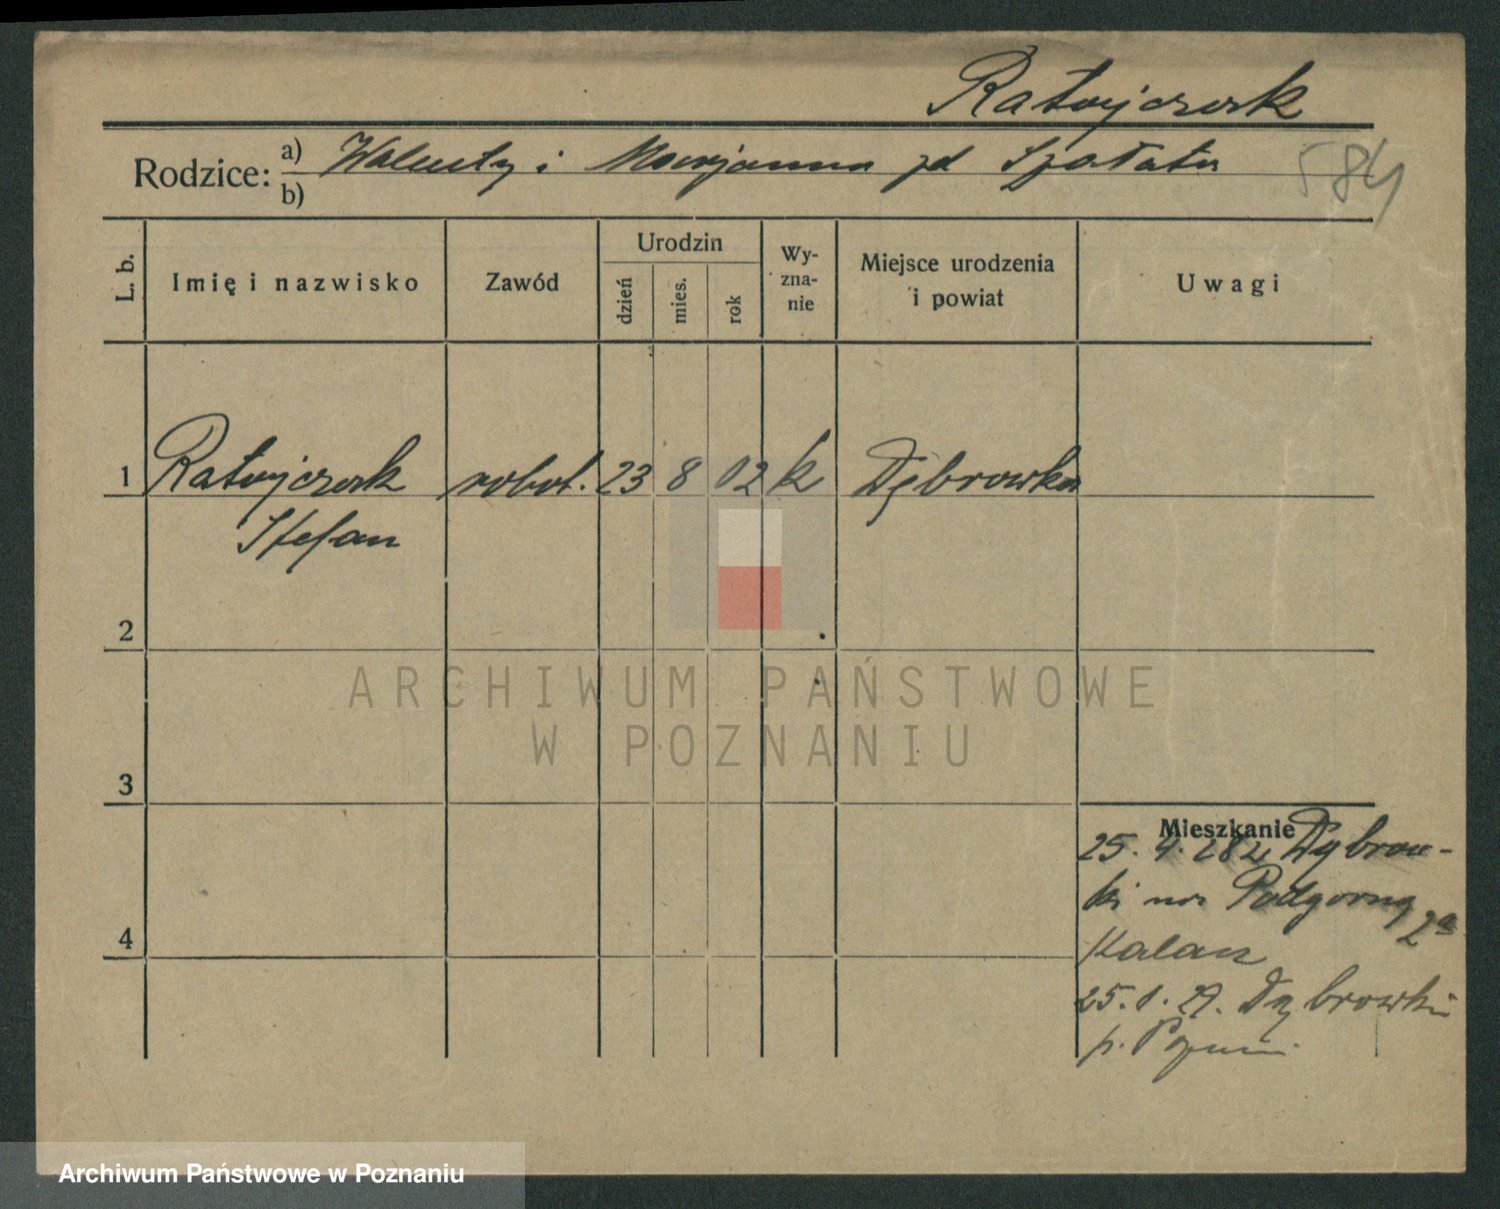 Ratajczak
Rodzice: a) Walenty i Marjanna zd Szpałata
b)
584
L. b. Imię i nazwisko Zawód Urodzin dzień mies. rok Wy-zna-nie Miejsce urodzenia i powiat Uwagi
1 Ratajczak robot. 23 8 02 k Dębrowka
Stefan
2
ARCHIWUM PAŃSTWOWE
W POZNANIU
3
Mieszkanie
25. 4. 28 z Dąbrow-
ki na Podgorną 2a
25. 1. 29. Dąbrowki
4
p.
Archiwum Państwowe w Poznaniu